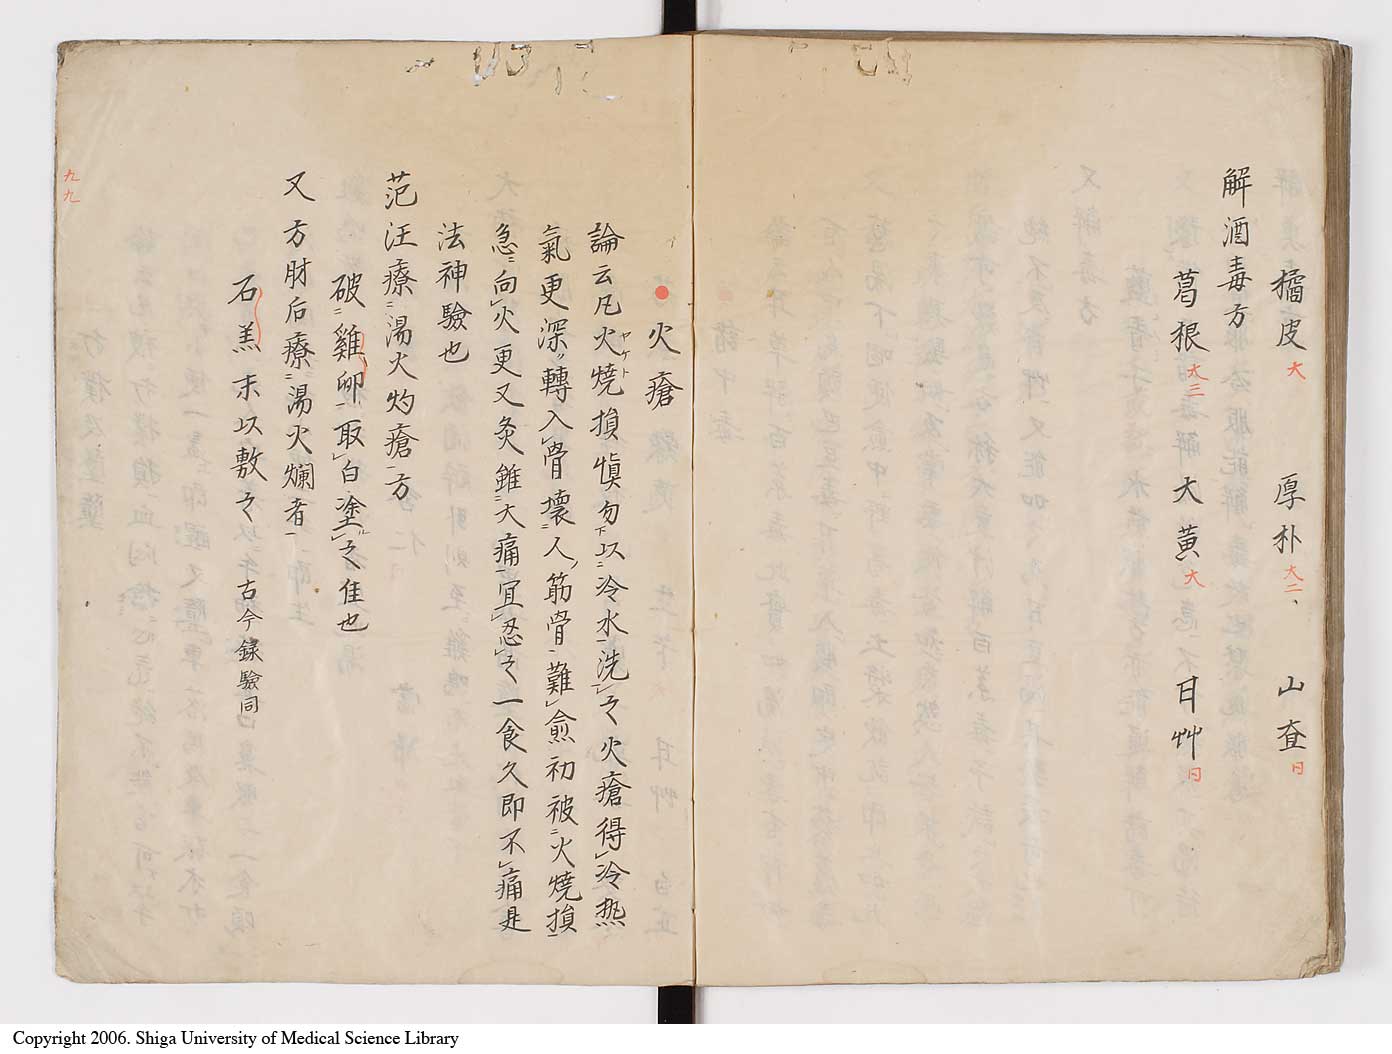 橘皮大 厚朴大二、 山査曰
解酒毒方
葛根大三 大黄大 甘艸曰
火瘡
論云凡火燒損慎勿以冷水洗之火瘡得冷热
ヤケト
氣更深轉入骨壊人筋骨難愈初被火燒損
急向火更又灸雖大痛宜忍之一食久即不痛是
法神驗也
范汪療湯火灼瘡方
破雞卵取白塗之佳也
又方肘后療湯火爛者
石羔末以敷之 古今録驗同
九九
Copyright 2006. Shiga University of Medical Science Library